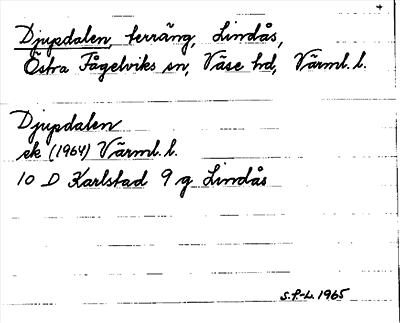 Djupdalen, terräng, Lindås,
Östra Fågelviks sn, Väse hd, Värml. l.
Djupdalen
ek (1964) Värml. l.
10 D Karlstad 9 g Lindås
S.F-L. 1965